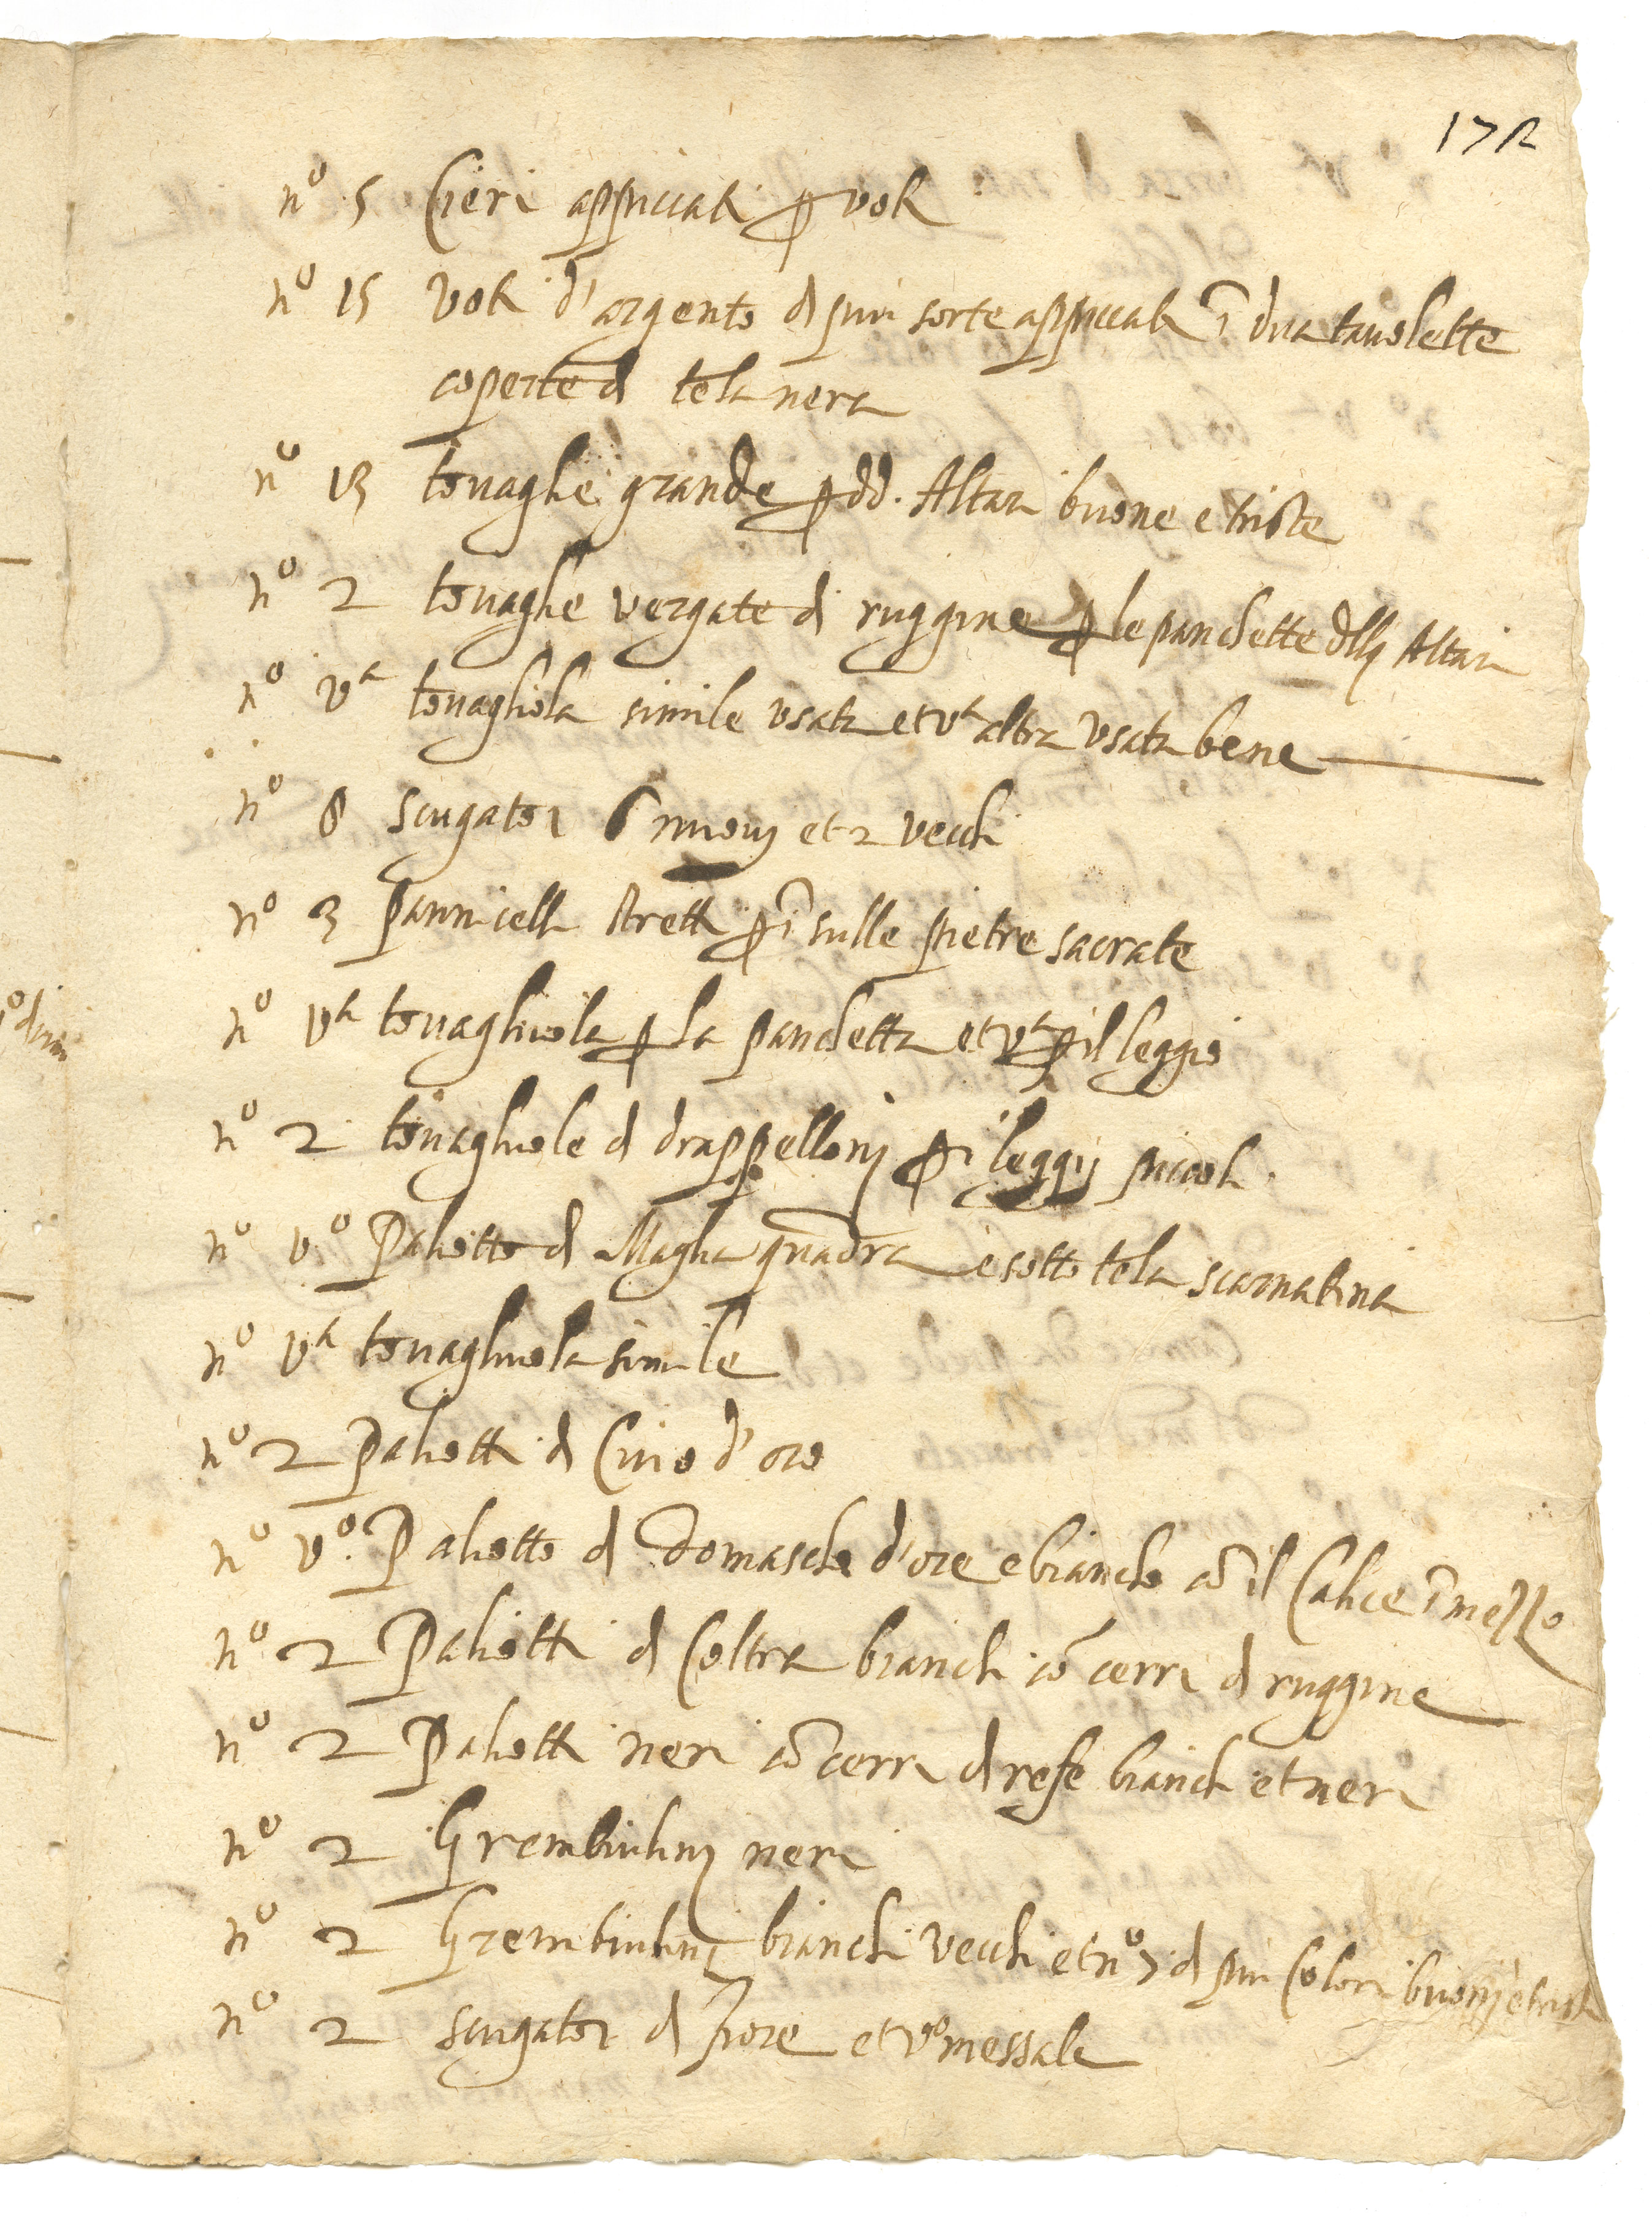 172
nº 5 Cieri appiccati ꝑ voti
nº 15 Voti d'argento di piu sorte appiccati ī dua tauolette
coperte di tela nera
nº 13 touaglie grande ꝑ dd. Altari buone e triste
nº 2 touaglie vergate di ruggine ꝑ le panchette dlli Altari
nº vª touagliola simile vsata et vª altra vsata bene
nº 8 sciugatoi 6 nuouj et 2 vecchi
nº 3 Pannicelli stretti ꝑ ī sulle pietre sacrate
nº vª touagliuola ꝑ la panchetta et vª ꝑ il leggio
nº 2 touagliuole di drappellonj ꝑ i leggij piccoli.
nº vº Paliotto di Maglia quadra e sotto tela scarnatina
nº vª touagliuola simile
nº 2 Paliotti di Cuio d'oro
nº vº. Paliotto di Domascho d'oro e biancho cō il Calice ī mezzo
nº 2 Paliotti di Coltra bianchi cō cerri di ruggine
nº 2 Paliotti neri cō cerri di refe bianchi et neri
nº 2 Grembiulinj neri
nº 2 Grembiulinj bianchi vecchi et nº 7 di piu Colori buonj e tristi
nº 2 sciugatoi di fiore et vº messale